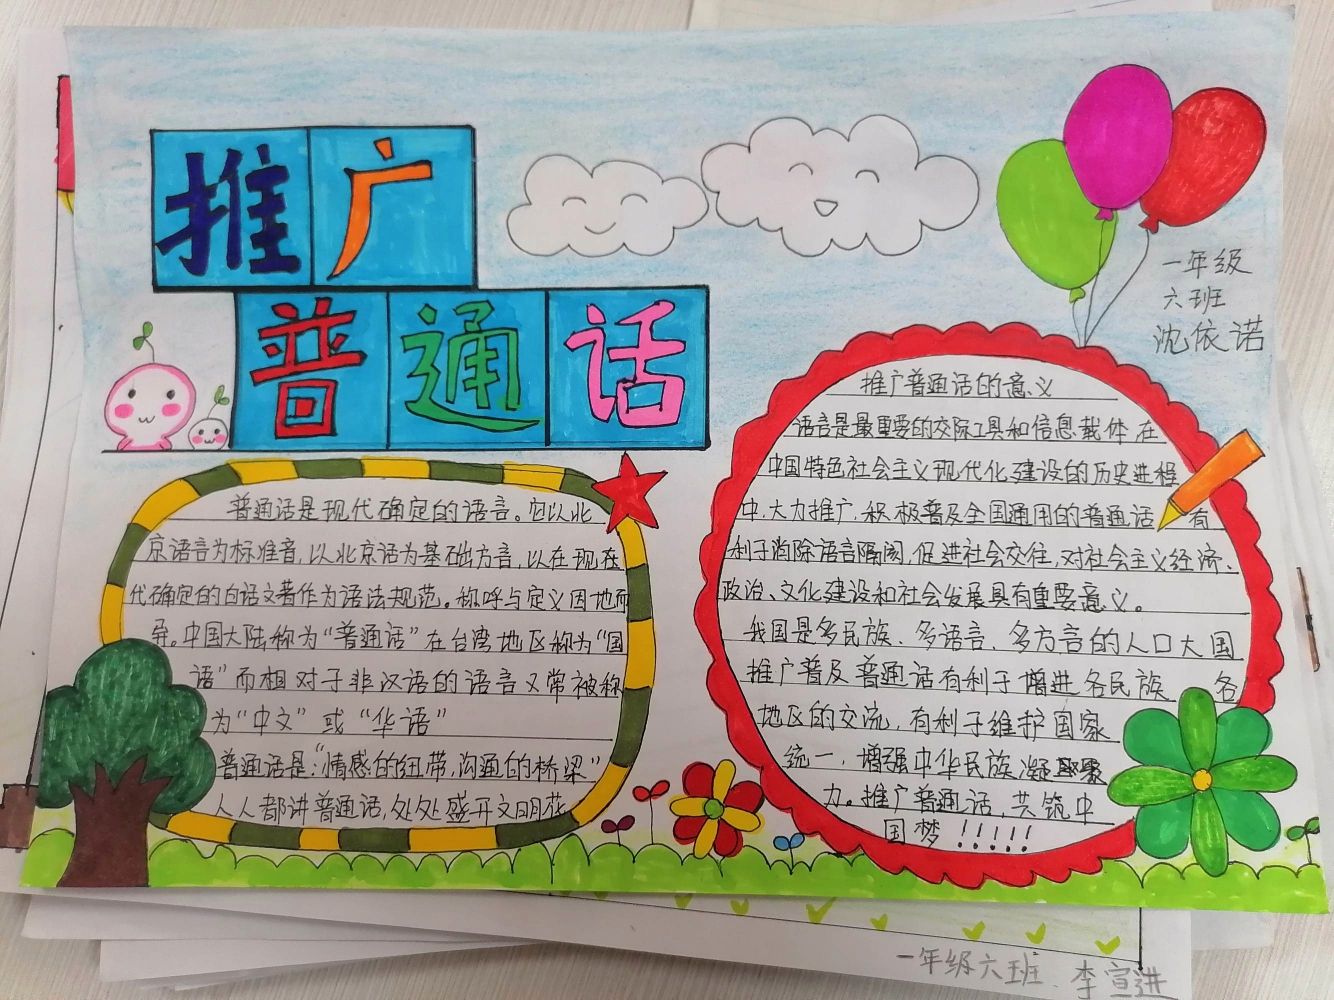 推广
普通话
一年级
六班
沈依诺
普通话是现代确定的语言。它以北
京语言为标准音,以北京话为基础方言,以在现在
代确定的白话文著作为语法规范。称呼与定义因地而
异。中国大陆称为“普通话”在台湾地区称为“国
语”而相对于非汉语的语言又常被称
为“中文”或“华语”
普通话是:“情感的纽带,沟通的桥梁”
人人都讲普通话,处处盛开文明花
推广普通话的意义
语言是最重要的交际工具和信息载体,在
中国特色社会主义现代化建设的历史进程
中,大力推广,积极普及全国通用的普通话 有
利于消除语言隔阂,促进社会交往,对社会主义经济、
政治、文化建设和社会发展具有重要意义。
我国是多民族、多语言、多方言的人口大国
推广普及普通话有利于增进各民族 各
地区的交流,有利于维护国家
统一,增强中华民族凝聚
力。推广普通话,共筑中
国梦!!!!!
一年级六班 李宣进